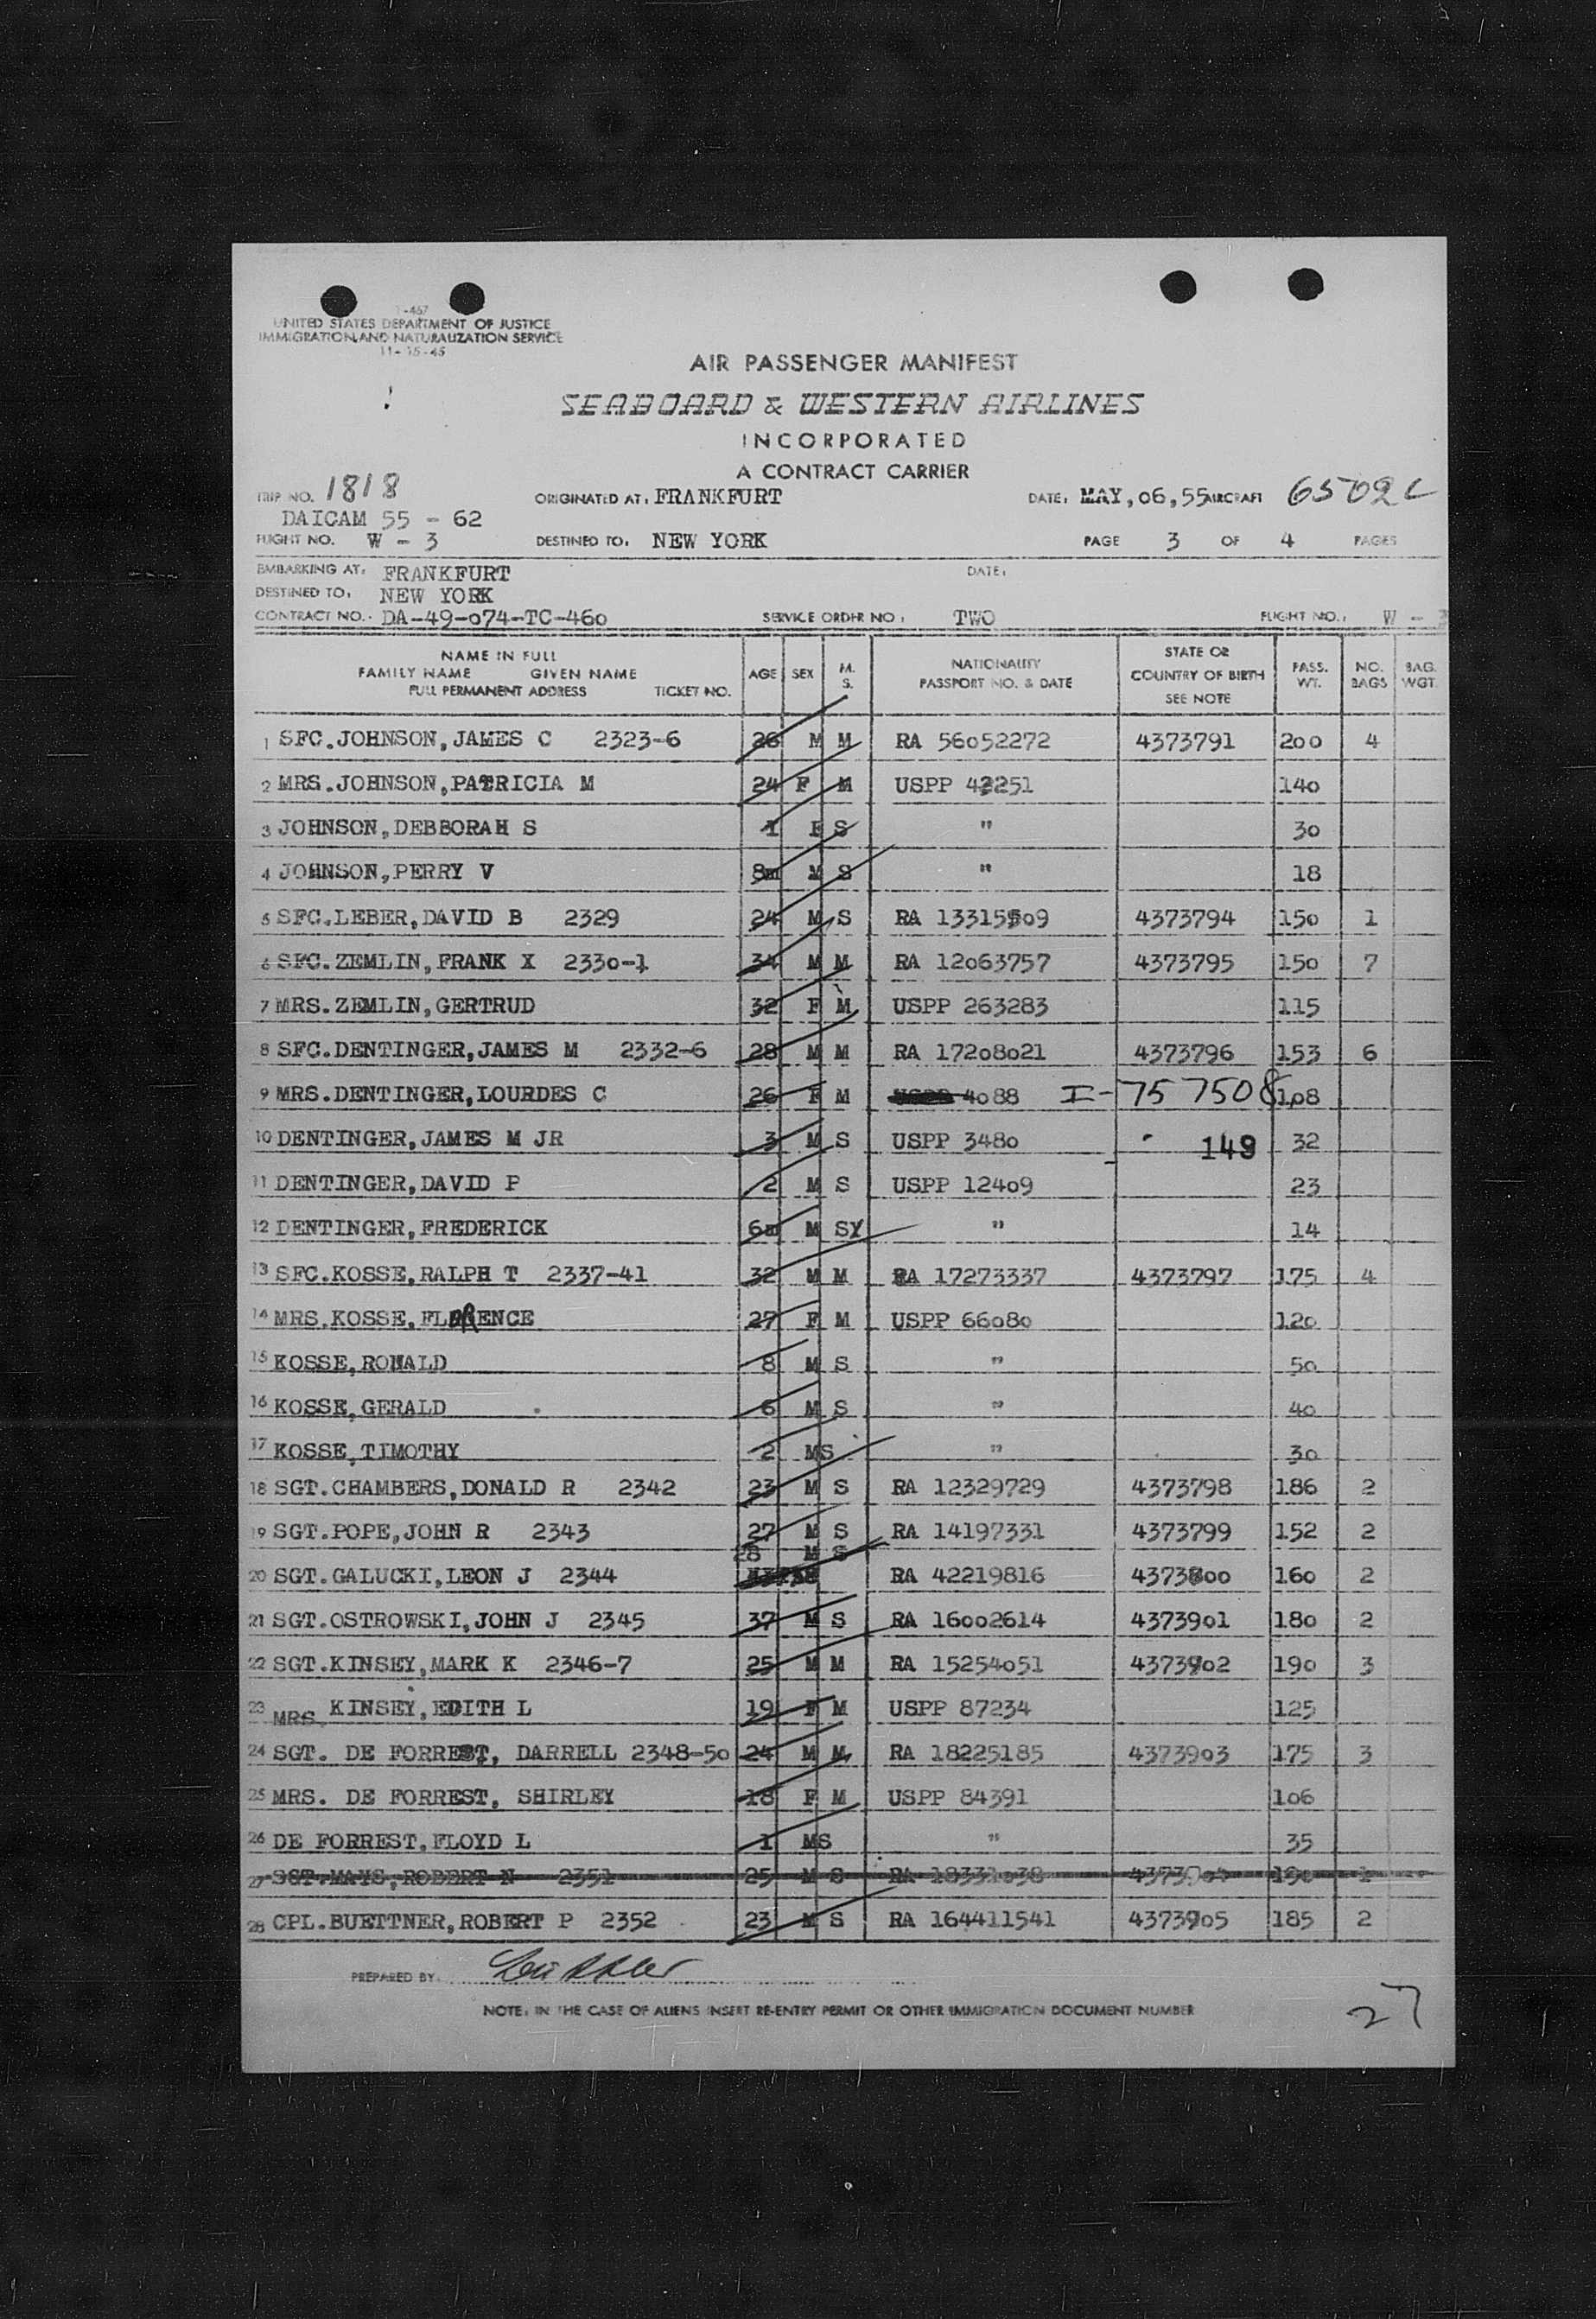 I-467
UNITED STATES DEPARTMENT OF JUSTICE
IMMIGRATION AND NATURALIZATION SERVICE
11-15-45
AIR PASSENGER MANIFEST
SEABOARD & WESTERN AIRLINES
INCORPORATED
A CONTRACT CARRIER
TRIP NO. 1818 ORIGINATED AT: FRANKFURT DATE: MAY,06,55 AIRCRAFT 6502C
DAICAM 55 - 62
FLIGHT NO. W - 3 DESTINED TO: NEW YORK PAGE 3 OF 4 PAGES
EMBARKING AT: FRANKFURT DATE:
DESTINED TO: NEW YORK
CONTRACT NO. DA-49-074-TC-460 SERVICE ORDER NO: TWO FLIGHT NO.: W - 3
NAME IN FULL FAMILY NAME GIVEN NAME FULL PERMANENT ADDRESS TICKET NO. AGE SEX M. S. NATIONALITY PASSPORT NO. & DATE STATE OR COUNTRY OF BIRTH SEE NOTE PASS. WT. NO. BAGS BAG. WGT.
1 SFC.JOHNSON,JAMES C 2323-6 26 M M RA 56052272 4373791 200 4
2 MRS.JOHNSON,PATRICIA M 24 F M USPP 42251 140
3 JOHNSON,DEBBORAH S 1 F S " 30
4 JOHNSON,PERRY V 8m M S " 18
5 SFC.LEBER,DAVID B 2329 24 M S RA 13315509 4373794 150 1
6 SFC.ZEMLIN,FRANK X 2330-1 34 M M RA 12063757 4373795 150 7
7 MRS.ZEMLIN,GERTRUD 32 F M USPP 263283 115
8 SFC.DENTINGER,JAMES M 2332-6 28 M M RA 17208021 4373796 153 6
9 MRS.DENTINGER,LOURDES C 26 F M 4088 I-757508 108
10 DENTINGER,JAMES M JR 3 M S USPP 3480 149 32
11 DENTINGER,DAVID P 2 M S USPP 12409 23
12 DENTINGER,FREDERICK 6m M S " 14
13 SFC.KOSSE,RALPH T 2337-41 32 M M RA 17273337 4373797 175 4
14 MRS.KOSSE,FLORENCE 27 F M USPP 66080 120
15 KOSSE,RONALD 8 M S " 50
16 KOSSE,GERALD 6 M S " 40
17 KOSSE,TIMOTHY 2 MS " 30
18 SGT.CHAMBERS,DONALD R 2342 23 M S RA 12329729 4373798 186 2
19 SGT.POPE,JOHN R 2343 27 M S RA 14197331 4373799 152 2
28 M S
20 SGT.GALUCKI,LEON J 2344 RA 42219816 4373800 160 2
21 SGT.OSTROWSKI,JOHN J 2345 37 M S RA 16002614 4373901 180 2
22 SGT.KINSEY,MARK K 2346-7 25 M M RA 15254051 4373902 190 3
23 MRS KINSEY,EDITH L 19 F M USPP 87234 125
24 SGT. DE FORREST, DARRELL 2348-50 24 M M RA 18225185 4373903 175 3
25 MRS. DE FORREST, SHIRLEY 18 F M USPP 84391 106
26 DE FORREST,FLOYD L 1 MS " 35
27 SGT.MAYS,ROBERT N 2351 25 M S RA 18331038 4373904 190 1
28 CPL.BUETTNER,ROBERT P 2352 23 M S RA 164411541 4373905 185 2
PREPARED BY:
NOTE: IN THE CASE OF ALIENS INSERT RE-ENTRY PERMIT OR OTHER IMMIGRATION DOCUMENT NUMBER
27